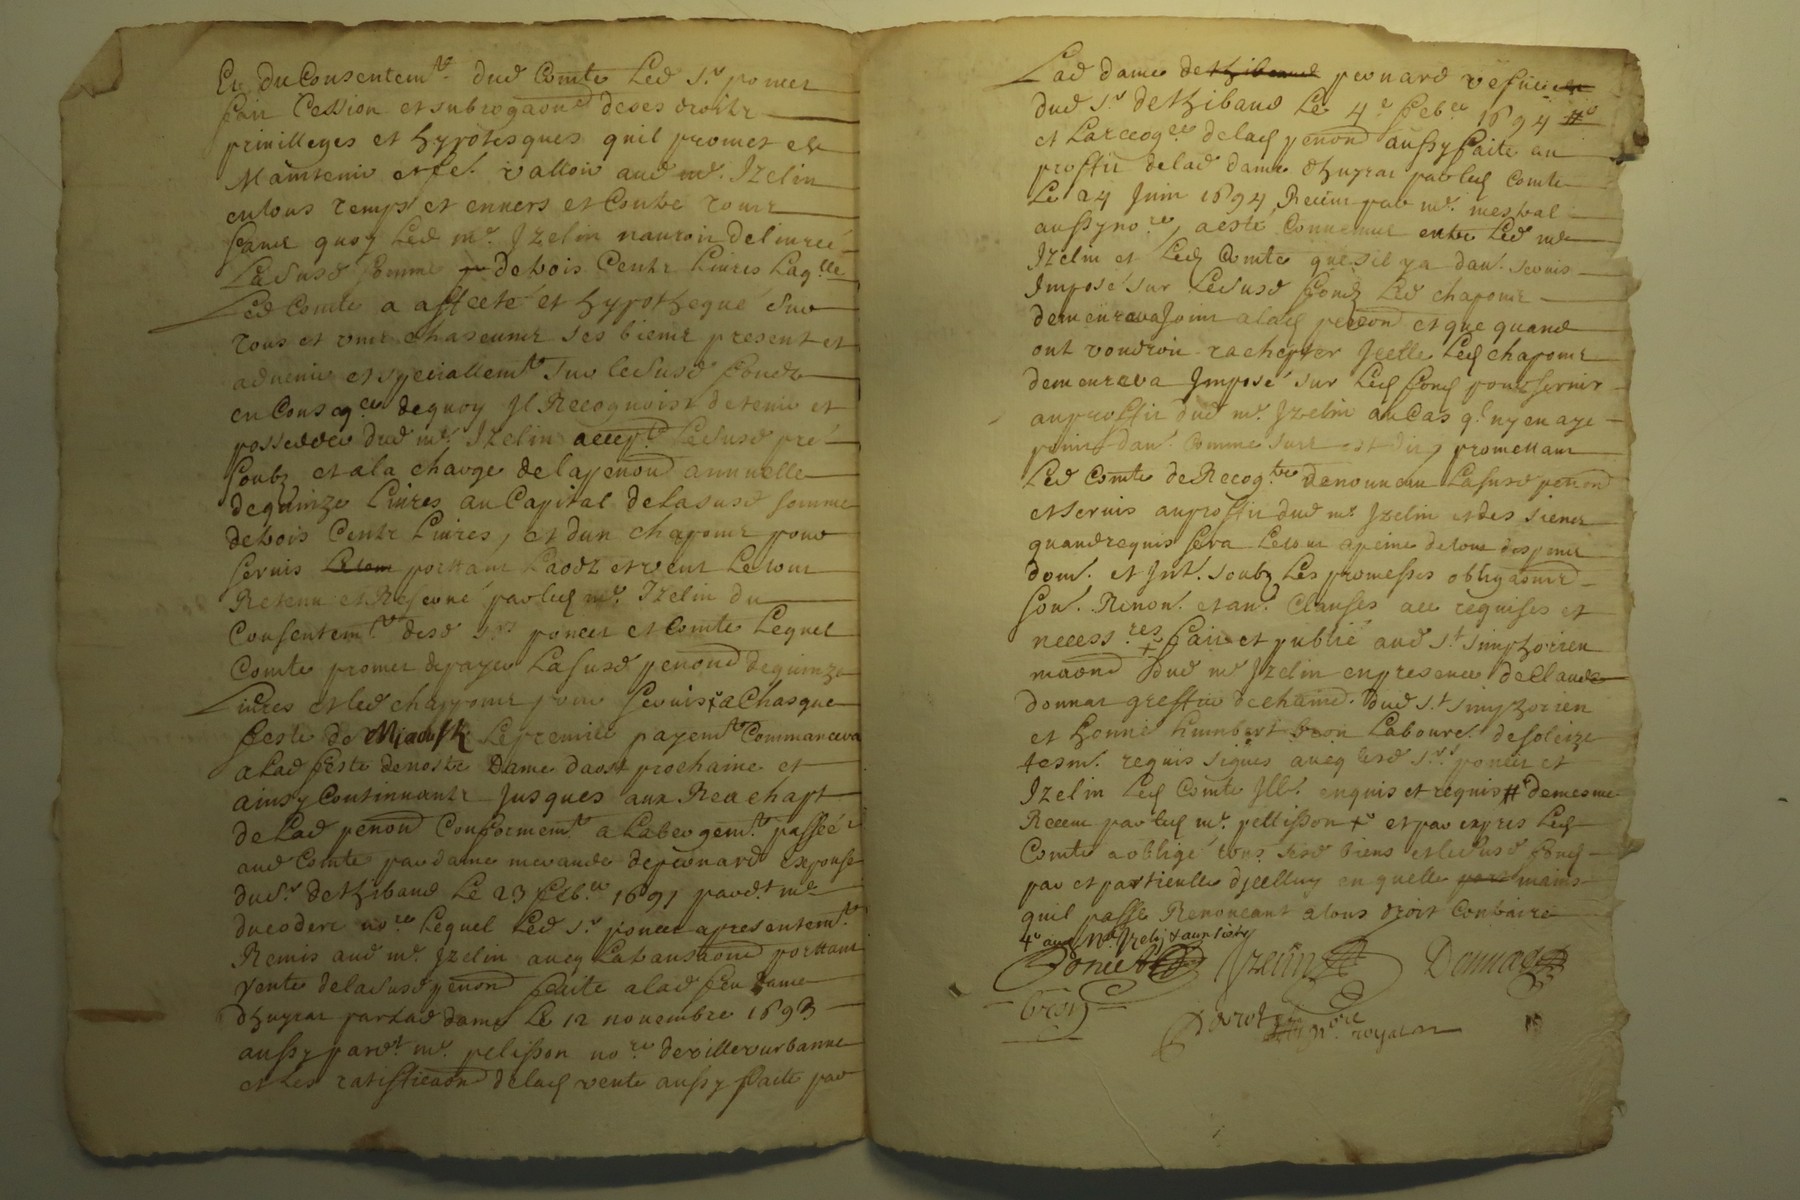 Et du Consentem.t dud Comte Led s.r poncet
fait Cession et subrogaôn de ses droitz
privilleges et hypotesques quil promet
Maintenir et fe. valloir aud m.e Izelin
en tous temps et envers et Contre tous
sans quoy Led m.e Izelin nauroit delivreé
La susd somme de trois Centz Livres Laq.lle
Led Comte a affecté et hypothequé sur
tous et uns chascuns ses biens present et
advenir et speciallem.t sur lesusd fondz
en Conseq.ce de quoy Il Recognoist de tenir et
posseder dud m.e Izelin accep.t Lesusd pré
soubz et a la charge de la penôn annuelle
de quinze Livres au Capital de La susd somme
de trois Centz Livres, et dun chapons pour
servis portant Laodz et vent Le tout
Retenu et Reservé par led m.e Izelin du
Consentem.t desd s.rs poncet et Comte Lequel
Comte promet de payer La susd penôn de quinze
Livres et led chappons pour servis a Chasque
feste de Le premier payem.t Commancera
a Lad feste de nostre Dame daost prochaine et
ainsy Continuantz Jusques aux Reachapt
de Lad penôn Conformem.t a Labergem.t passée
aud Comte par dame de ponard Expouse
du s.r de thibaud Le 23 feb.er 1691 pard.t m.e
ducoderc no.re Lequel Led s.r poncet a presentem.t
Remis aud m.e Izelin aveq La transaôn portant
vente de la susd penôn faite a lad feu dame
dhuyrat par Lad dame Le 12 novembre 1693
aussy pard.t m.e pelisson no.re de villeurbanne
et Les ratiffieaôn de lad vente aussy faite par
Lad dame de ponard
dud s.r de thibaud Le 4.e feb.er 1694
et La recog.ce de lad penôn aussy faite au
proffit de lad dame dhuyrat par led Comte
Le 24 Juin 1694 Receue par m.e mestral
aussy no.re, a esté Convenus entre Led m.e
Izelin et Led Comte que sil y a dau. servis
Imposé sur Lesusd fondz Led chapons
demeurera Joint a lad penôn et que quand
ont voudroit rachepter Icelle Led chapons
demeurera Imposé sur Led fond pour servir
au proffit dud m.e Izelin au Cas q.l ny en aye
point dau. Comme sus est dit, promettant
Led Comte de Recog.tre denouveau La susd penôn
et servis au proffit dud m.e Izelin et des siens
quand requis sera Le tout a peine de tous despens
dom. et Int. soubz Les promesses obligaôns
sou. Renon. et au. Clauses a ce requises et
necess.res + fait et publié aud s.t simphorien
maôn dud m.e Izelin en presence de Claude
donnat greffier de dud s.t simphorien
et honné humbert bron Laboure. de soleize
tesm. requis signés aveq lesd s.rs poncet et
Izelin Led Comte Ill. enquis et requis # de mesme
Receu par led m.e pellisson + et par expres Led
Comte a obligé tous sesd biens et lesusd fond
par et particulle dicelluy en quelle mains
quil passe Renoncant a tous droit Contraire
Poncet Izelin Donnat
bron
no.re royal